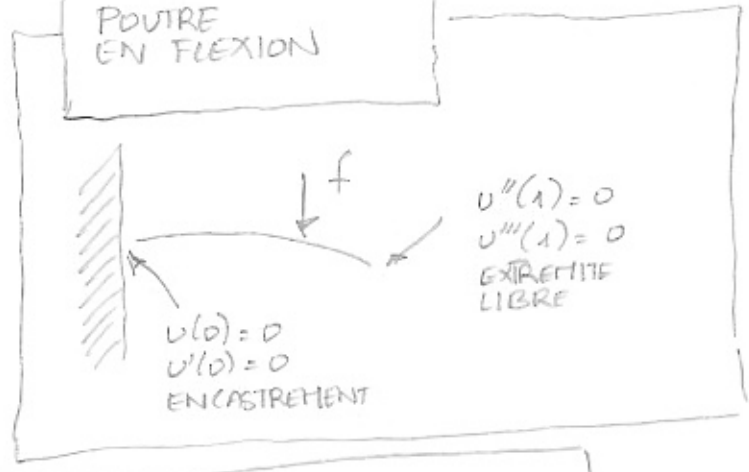 POUTRE
EN FLEXION
f
u''(1) = 0
u'''(1) = 0
EXTREMITE
LIBRE
u(0) = 0
u'(0) = 0
ENCASTREMENT